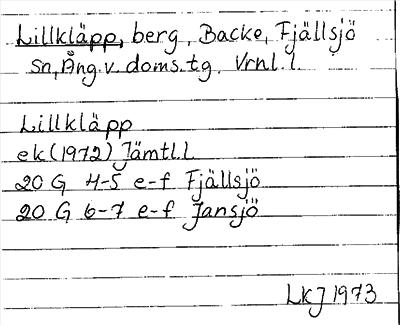 Lillkläpp, berg, Backe, Fjällsjö
sn, Ång.v.doms.tg, Vrnl.l.
Lillkläpp
ek (1972) Jämtl.l
20 G 4-5 e-f Fjällsjö
20 G 6-7 e-f Jansjö
LkJ 1973